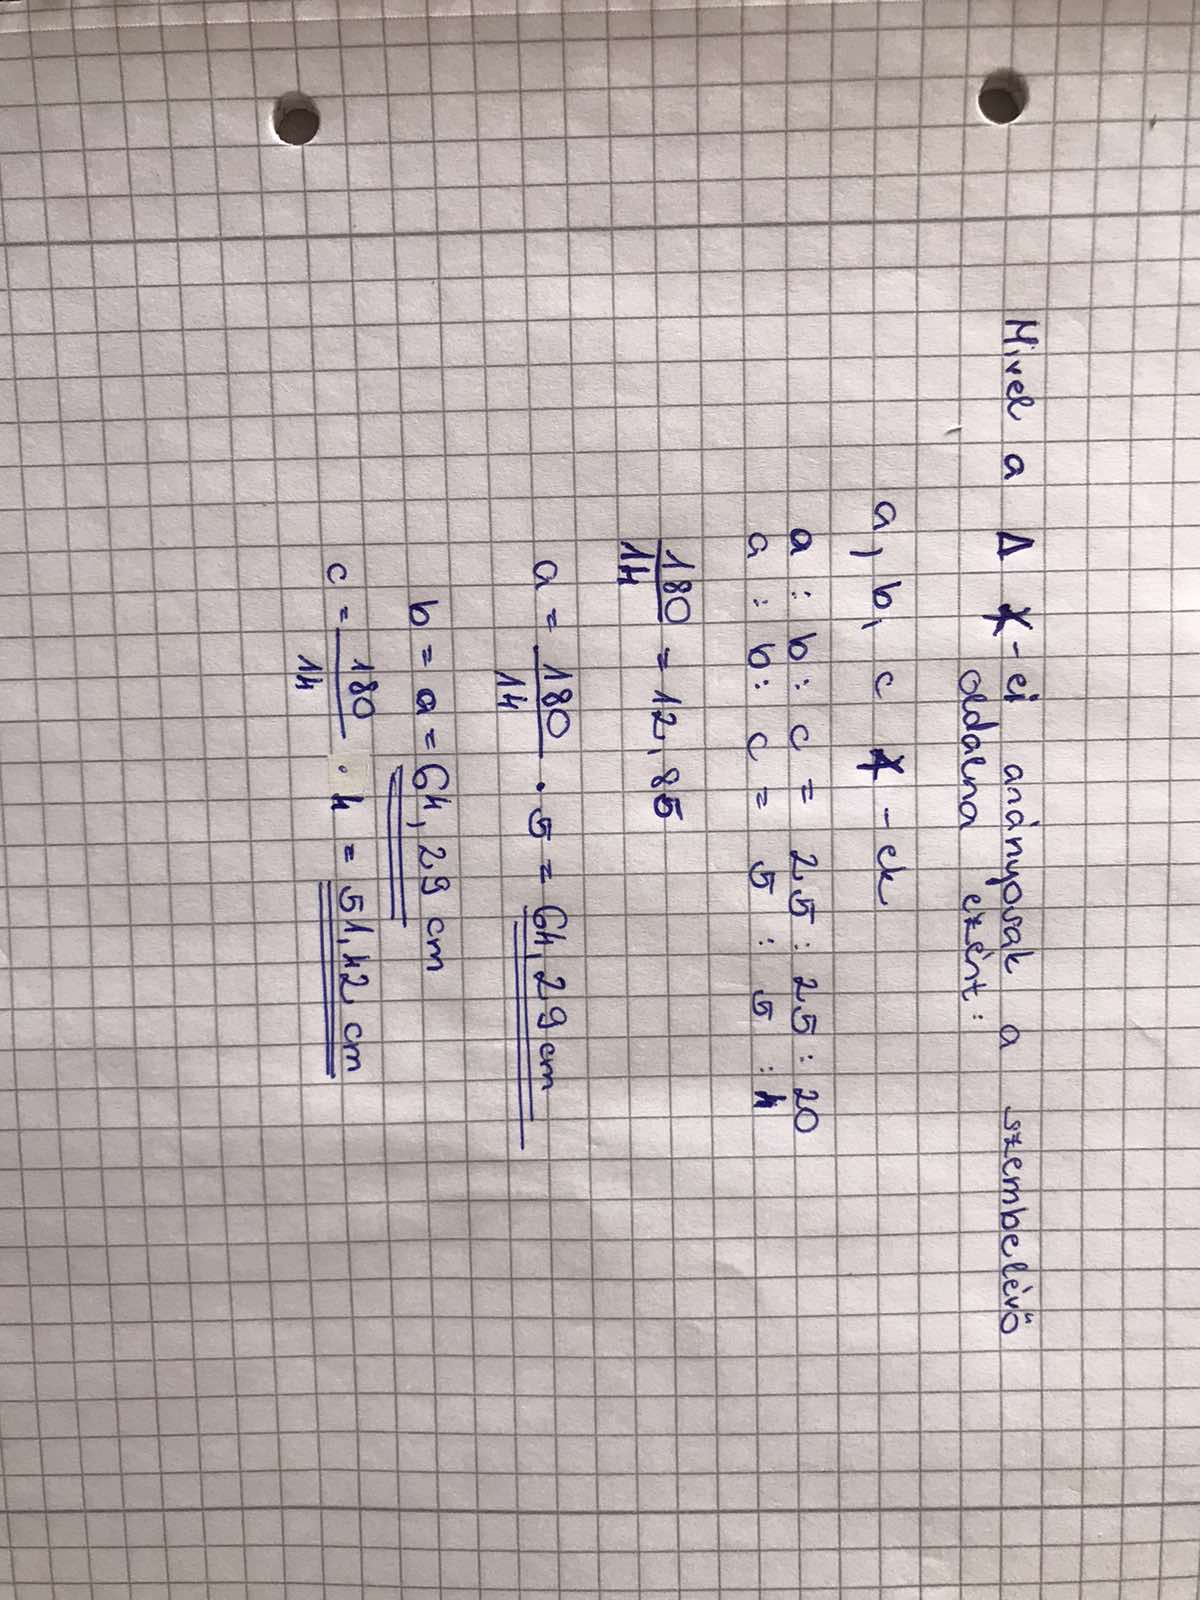 Mivel a Δ ∢-ei arányosak a szembelévő
oldalna ezért:
a, b, c ∢-ek
a : b : c = 25 : 25 : 20
a : b : c = 5 : 5 : 4
180/14 = 12,85
a = 180/14 · 5 = 64,29 cm
b = a = 64,29 cm
c = 180/14 · 4 = 51,42 cm